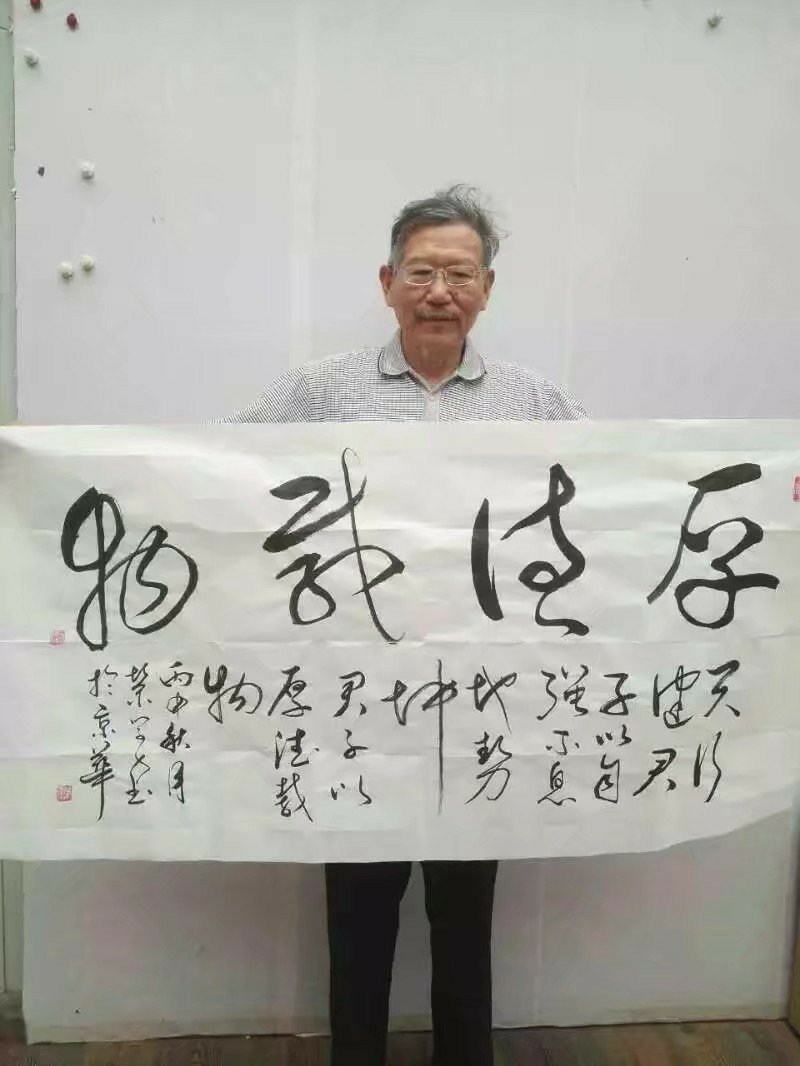 厚德载物
天行
健君
子以自
强不息
地势
坤
君子以
厚德载
物
丙申秋月
荣
於京華